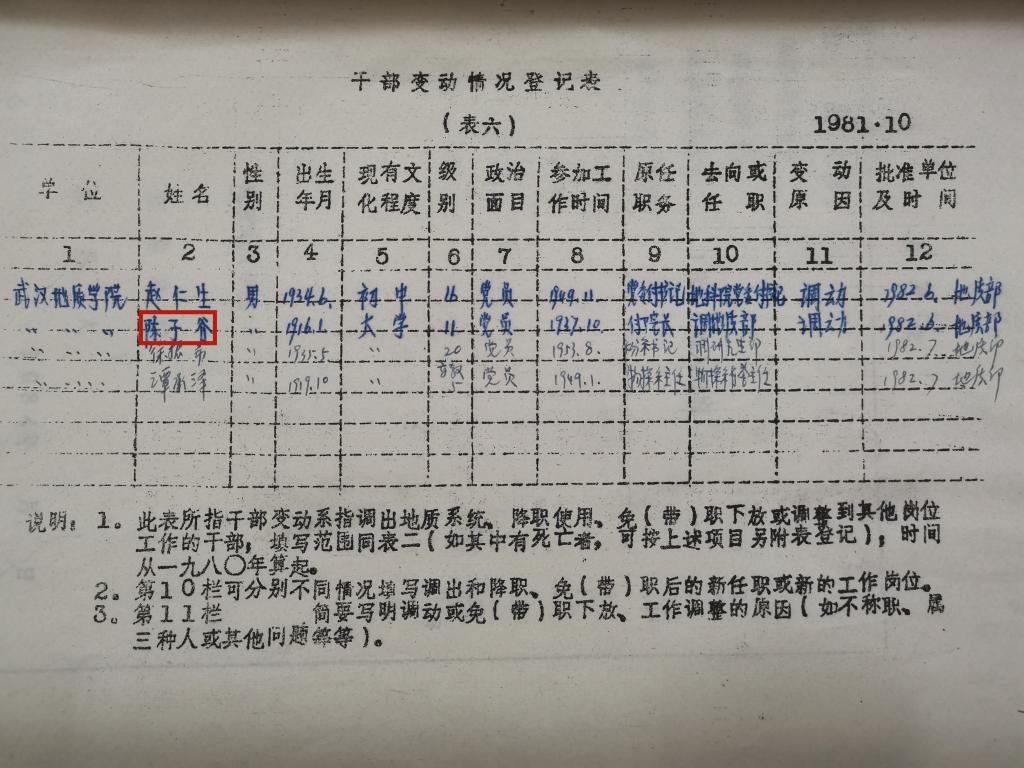 干部变动情况登记表
（表六） 1981·10
单位 姓名 性别 出生年月 现有文化程度 级别 政治面目 参加工作时间 原任职务 去向或任职 变动原因 批准单位及时间
1 2 3 4 5 6 7 8 9 10 11 12
武汉地质学院 赵仁生 男 1934.6. 初中 16 党员 1949.11. 党委付书记 地科院党委付书记 调动 1982.6. 地质部
〃 〃 〃 陈子谷 〃 1916.1. 大学 11 党员 1937.10. 付院长 调地质部 调动 1982.6. 地质部
〃 1931.5 〃 20 党员 1953.8. 1982.7 地质部
〃 1919.10 〃 党员 1949.1. 物探系主任 1982.7 地质部
说明：1。此表所指干部变动系指调出地质系统、降职使用、免（带）职下放或调整到其他岗位
工作的干部，填写范围同表二（如其中有死亡者，可按上述项目另附表登记），时间
从一九八〇年算起。
2。第10栏可分别不同情况填写调出和降职、免（带）职后的新任职或新的工作岗位。
3。第11栏 简要写明调动或免（带）职下放、工作调整的原因（如不称职、属
三种人或其他问题等等）。